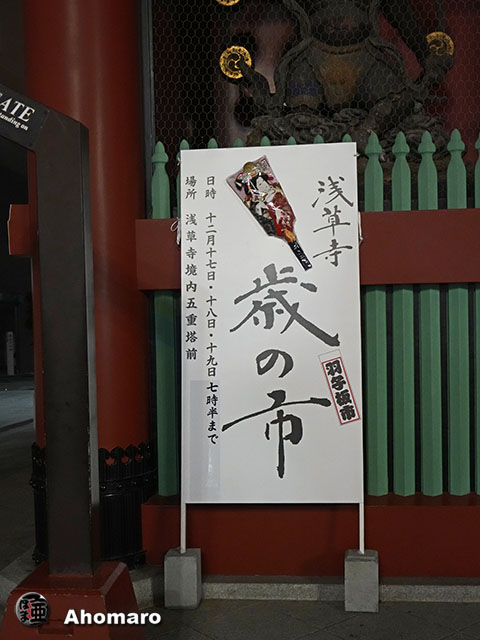 ATE
standing on
浅草寺
歳の市
羽子板市
日時 十二月十七日・十八日・十九日 七時半まで
場所 浅草寺境内五重塔前
Ahomaro